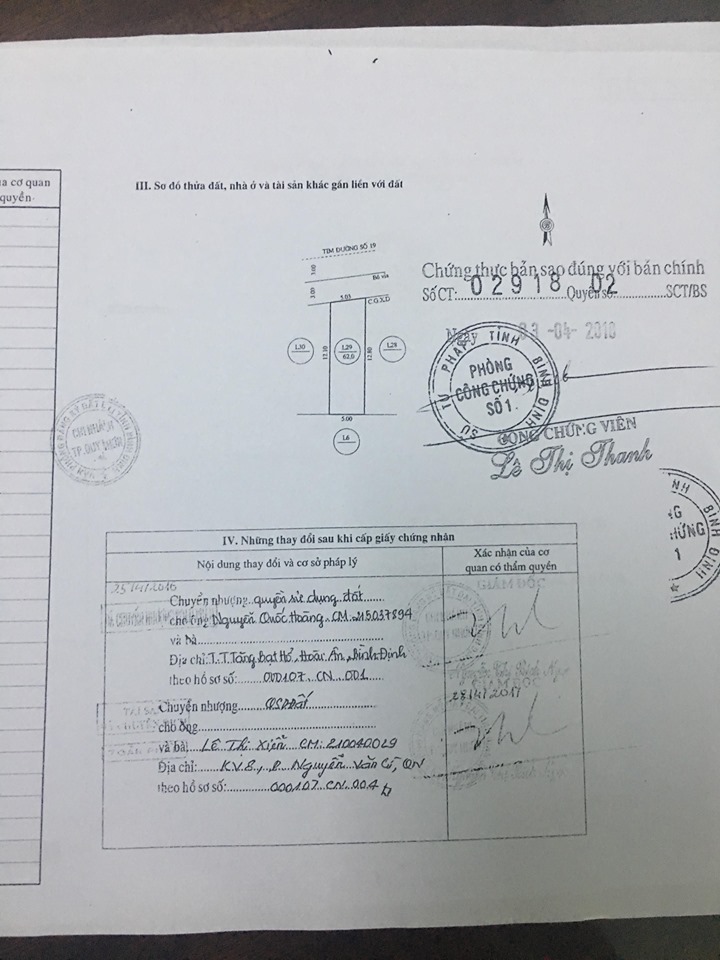 a cơ quan
quyền
III. Sơ đồ thửa đất, nhà ở và tài sản khác gắn liền với đất
TIM ĐƯỜNG SỐ 19
3.00
Bó vỉa
3.00
5.03
C.G.X.D
L30
12.10
L29
62.0
12.80
L28
5.00
L6
Chứng thực bản sao đúng với bản chính
Số CT: 02918 Quyển số: 02 SCT/BS
Ngày 03 -04- 2018
SỞ TƯ PHÁP TỈNH BÌNH ĐỊNH
PHÒNG
CÔNG CHỨNG
SỐ 1
CÔNG CHỨNG VIÊN
Lê Thị Thanh
CHI NHÁNH
TP. QUY NHƠN
BÌNH ĐỊNH
1
IV. Những thay đổi sau khi cấp giấy chứng nhận
Nội dung thay đổi và cơ sở pháp lý
Xác nhận của cơ
quan có thẩm quyền
25/4/2016
GIÁM ĐỐC
Chuyển nhượng quyền sử dụng đất
cho ông Nguyễn Quốc Hoàng CM 215037894
và bà
Địa chỉ: T.T Tăng Bạt Hổ, Hoài Ân, Bình Định
theo hồ sơ số: 000107. CN. 001
GIÁM ĐỐC
Chuyển nhượng QSDĐất
28/4/2017
cho ông
và bà LÊ Thị Xiển CM: 210040029
Địa chỉ: KV8, P. Nguyễn Văn Cừ, QN
theo hồ sơ số: 000107. CN. 004